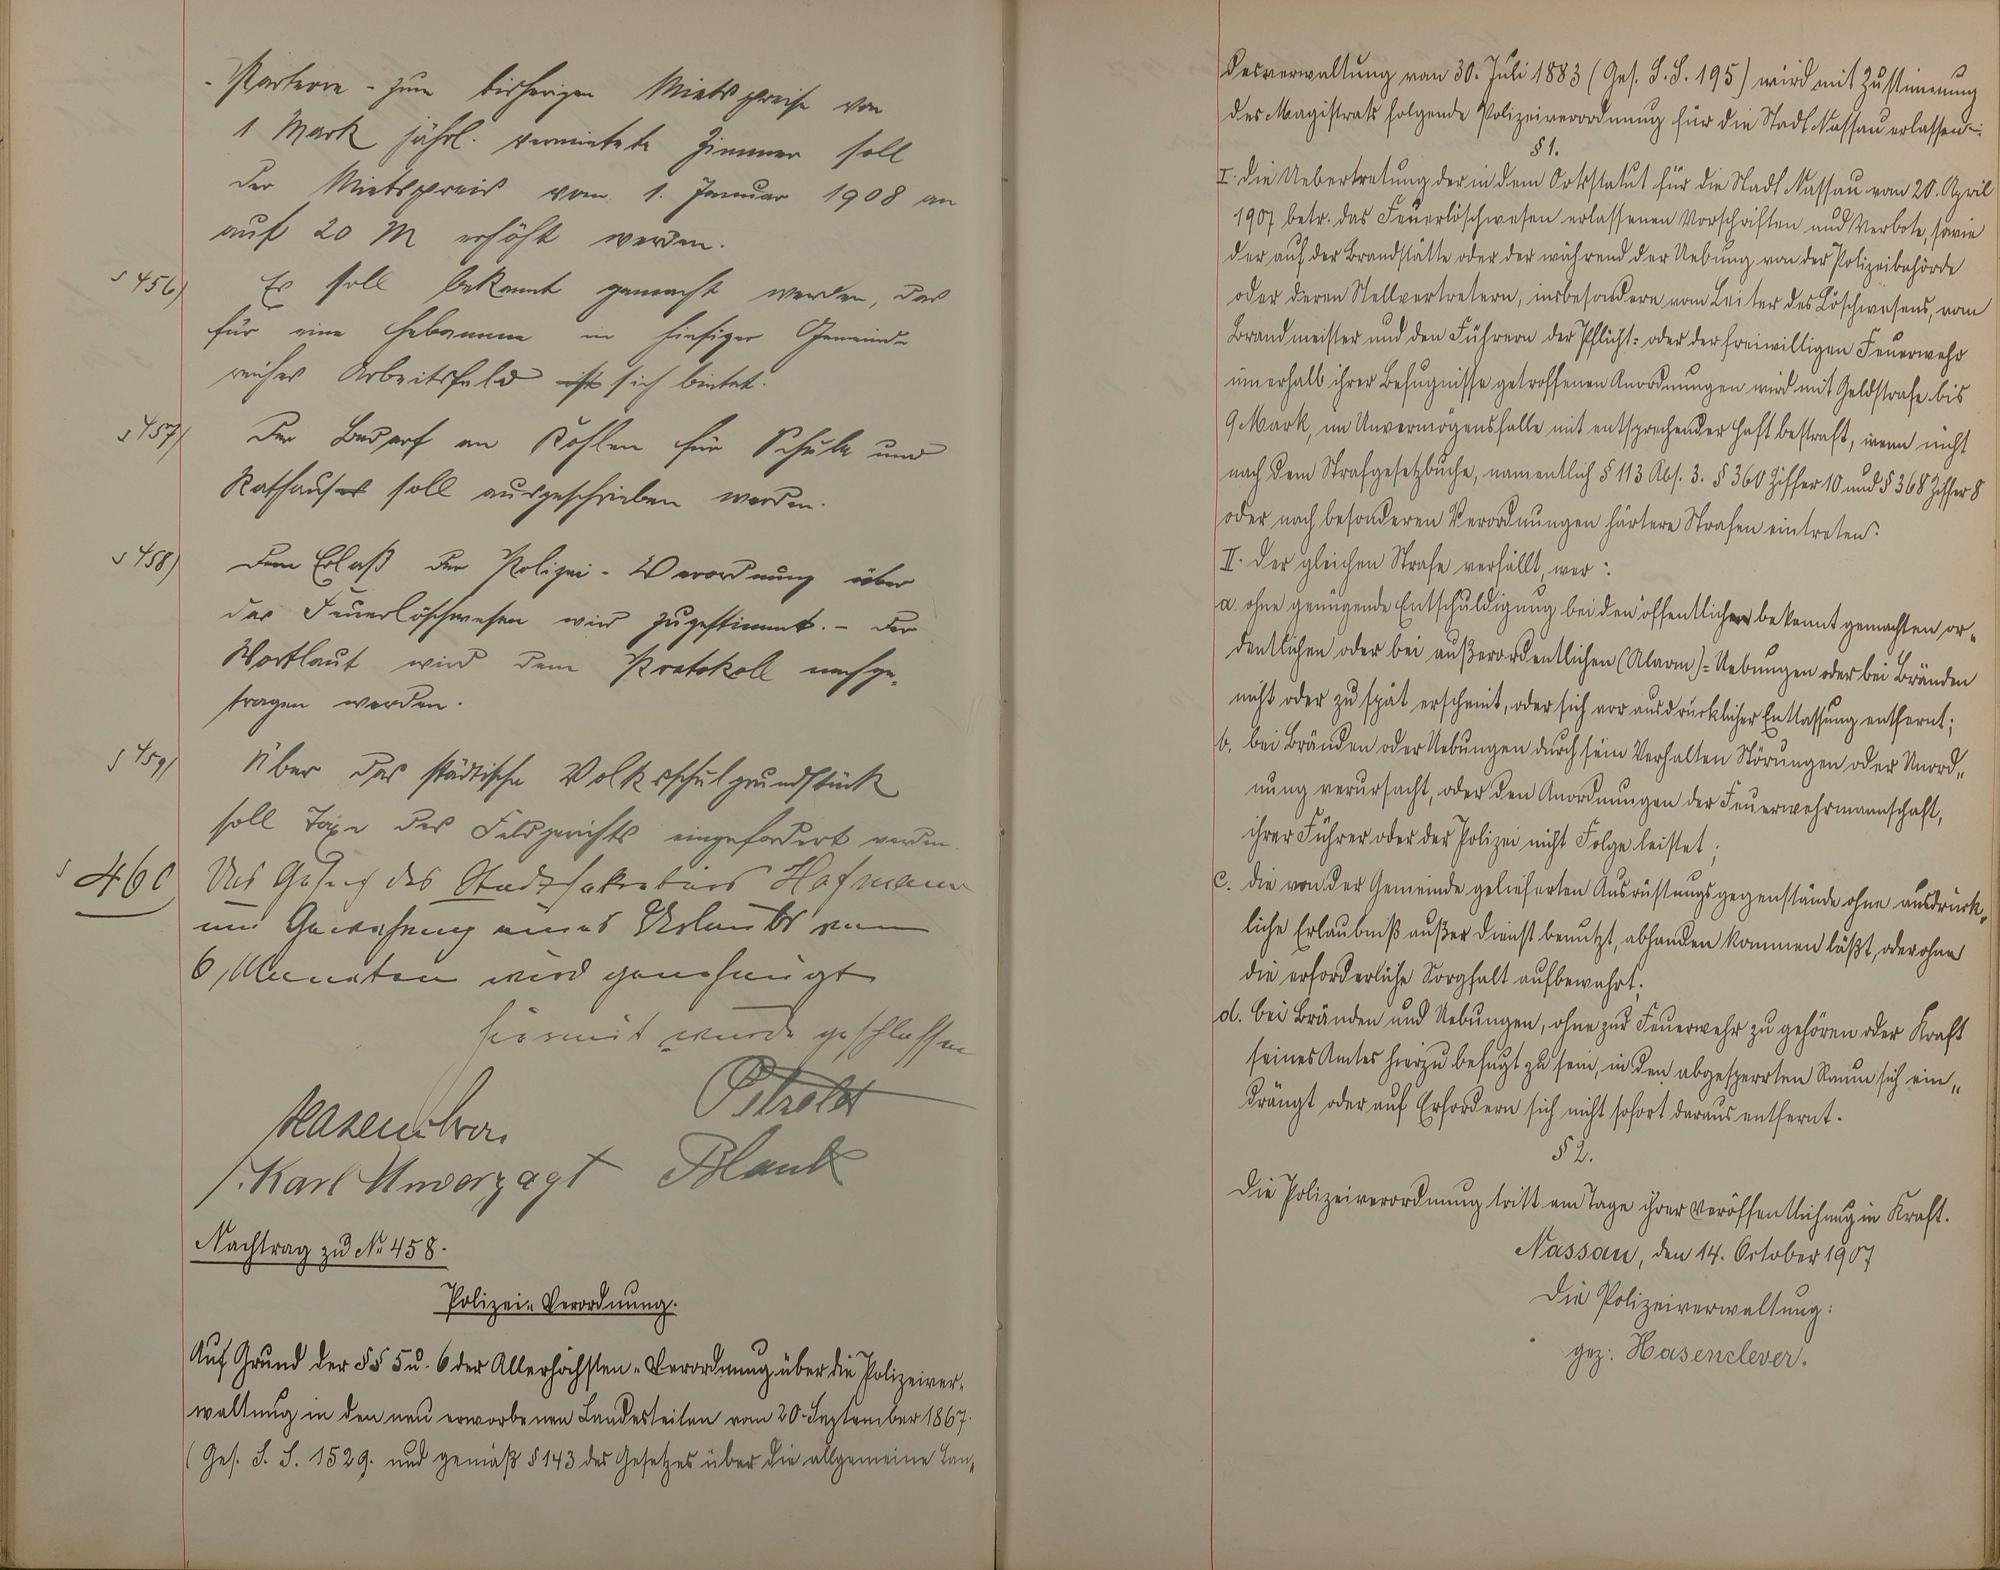 - Parterre - zum bisherigen Mietspreise von
1 Mark jährl. vermietete Zimmer soll
der Mietspreis vom 1. Januar 1908 an
auf 20 M erhöht werden.
§ 456) Es soll bekannt gemacht werden, das
für eine Hebamme in hiesiger Gemeinde
reiches Arbeitsfeld ist sich bietet.
§ 457) Der Bedarf an Kohlen für Schule und
Rathauses soll ausgeschrieben werden.
§ 458) Dem Erlaß der Polizei-Verordnung über
das Feuerlöschwesen wird zugestimmt. - Der
Wortlaut wird dem Protokoll nachge-
tragen werden.
§ 459) Über das städtische Volksschulgrundstück
soll Taxe des Feldgerichts eingefordert werden.
§ 460 Das Gesuch des Stadtsekretärs Hofmann
um Gewährung eines Urlaubs von
6 Monaten wird genehmigt
hiermit wurde geschlossen
Hasenclever. Petzoldt
Karl Unverzagt Blank
Nachtrag zu No 458.
Polizei-Verordnung.
Auf Grund der §§ 5 u. 6 der Allerhöchsten-Verordnung über die Polizeiver-
waltung in den neu erworbenen Landesteilen vom 20. September 1867.
(Ges. S. S. 1529. und gemäß § 143 des Gesetzes über die allgemeine Lan-
desverwaltung vom 30. Juli 1883 (Ges. S. S. 195) wird mit Zustimmung
des Magistrats folgende Polizeiverordnung für die Stadt Nassau erlassen:
§ 1.
I. Die Uebertretung der in dem Ortsstatut für die Stadt Nassau vom 20. April
1907 betr. das Feuerlöschwesen erlassenen Vorschriften und Verbote, sowie
der auf der Brandstätte oder der während der Uebung von der Polizeibehörde
oder deren Stellvertretern, insbesondere vom Leiter des Löschwesens, vom
Brandmeister und den Führern der Pflicht- oder der freiwilligen Feuerwehr
innerhalb ihrer Befugnisse getroffenen Anordnungen wird mit Geldstrafe bis
9 Mark, im Unvermögensfalle mit entsprechender Haft bestraft, wenn nicht
nach dem Strafgesetzbuche, namentlich § 113 Abs. 3. § 360 Ziffer 10 und § 368 Ziffer 8
oder nach besonderen Verordnungen härtere Strafen eintreten.
II. Der gleichen Strafe verfällt, wer:
a. ohne genügende Entschuldigung bei den öffentlichen bekannt gemachten or-
dentlichen oder bei außerordentlichen (Alarm)- Uebungen oder bei Bränden
nicht oder zu spät erscheint, oder sich vor ausdrücklicher Entlassung entfernt;
b. bei Bränden oder Uebungen durch sein Verhalten Störungen oder Unord-
nung verursacht, oder den Anordnungen der Feuerwehrmannschaft,
ihrer Führer oder der Polizei nicht Folge leistet;
c. die von der Gemeinde gelieferten Ausrüstungsgegenstände ohne ausdrück-
liche Erlaubniß außer Dienst benutzt, abhanden kommen läßt, oder ohne
die erforderliche Sorgfalt aufbewahrt;
d. bei Bränden und Uebungen, ohne zur Feuerwehr zu gehören oder Kraft
seines Amtes hierzu befugt zu sein, in den abgesperrten Raum sich ein-
drängt oder auf Erfordern sich nicht sofort daraus entfernt.
§ 2.
Die Polizeiverordnung tritt am Tage ihrer Veröffentlichung in Kraft.
Nassau, den 14. October 1907
Die Polizeiverwaltung:
gez. Hasenclever.